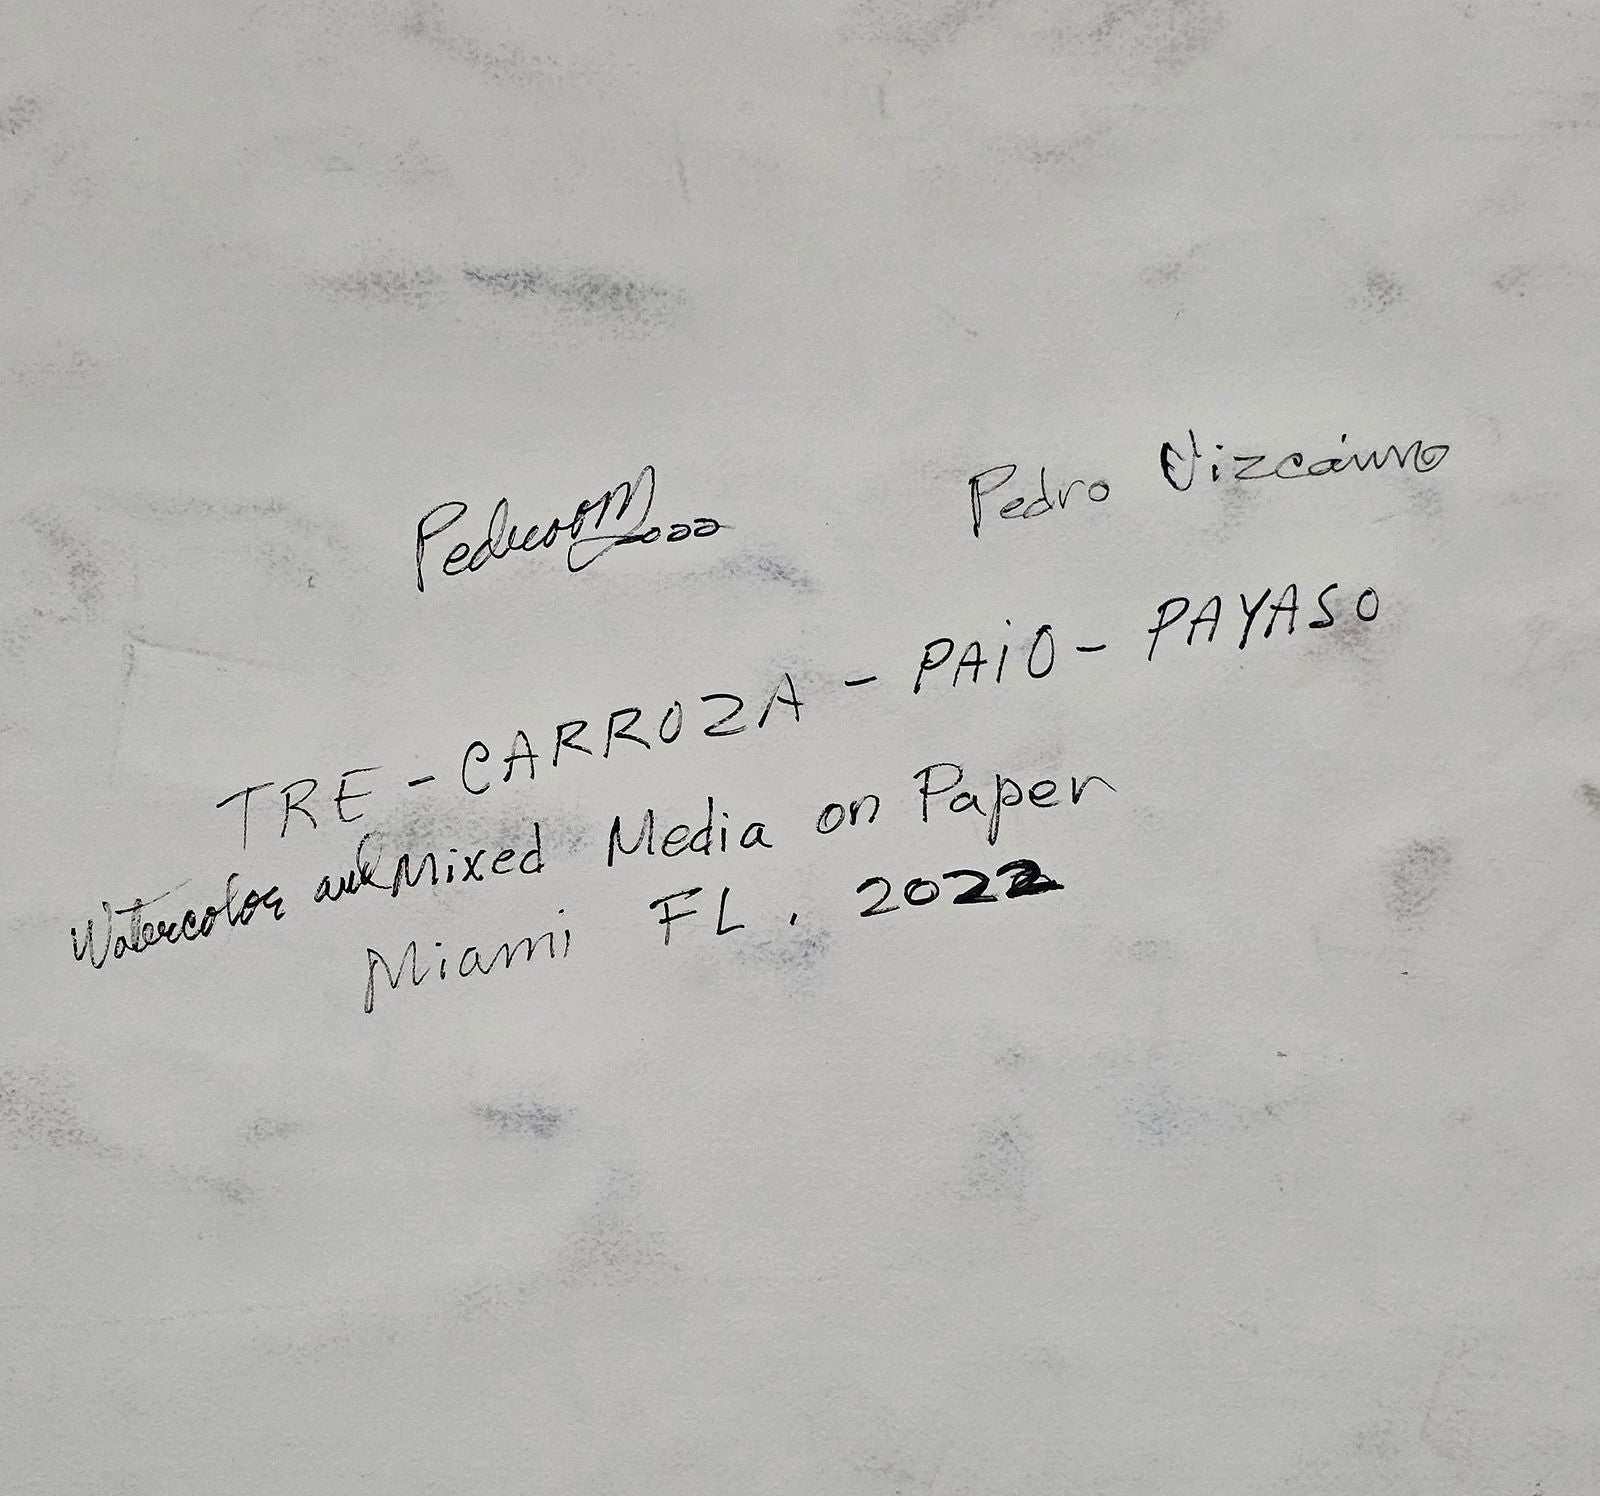 PedrooM 2022
Pedro Vizcaíno
TRE - CARROZA - PAiO - PAYASO
Watercolor and Mixed Media on Paper
Miami FL. 2022